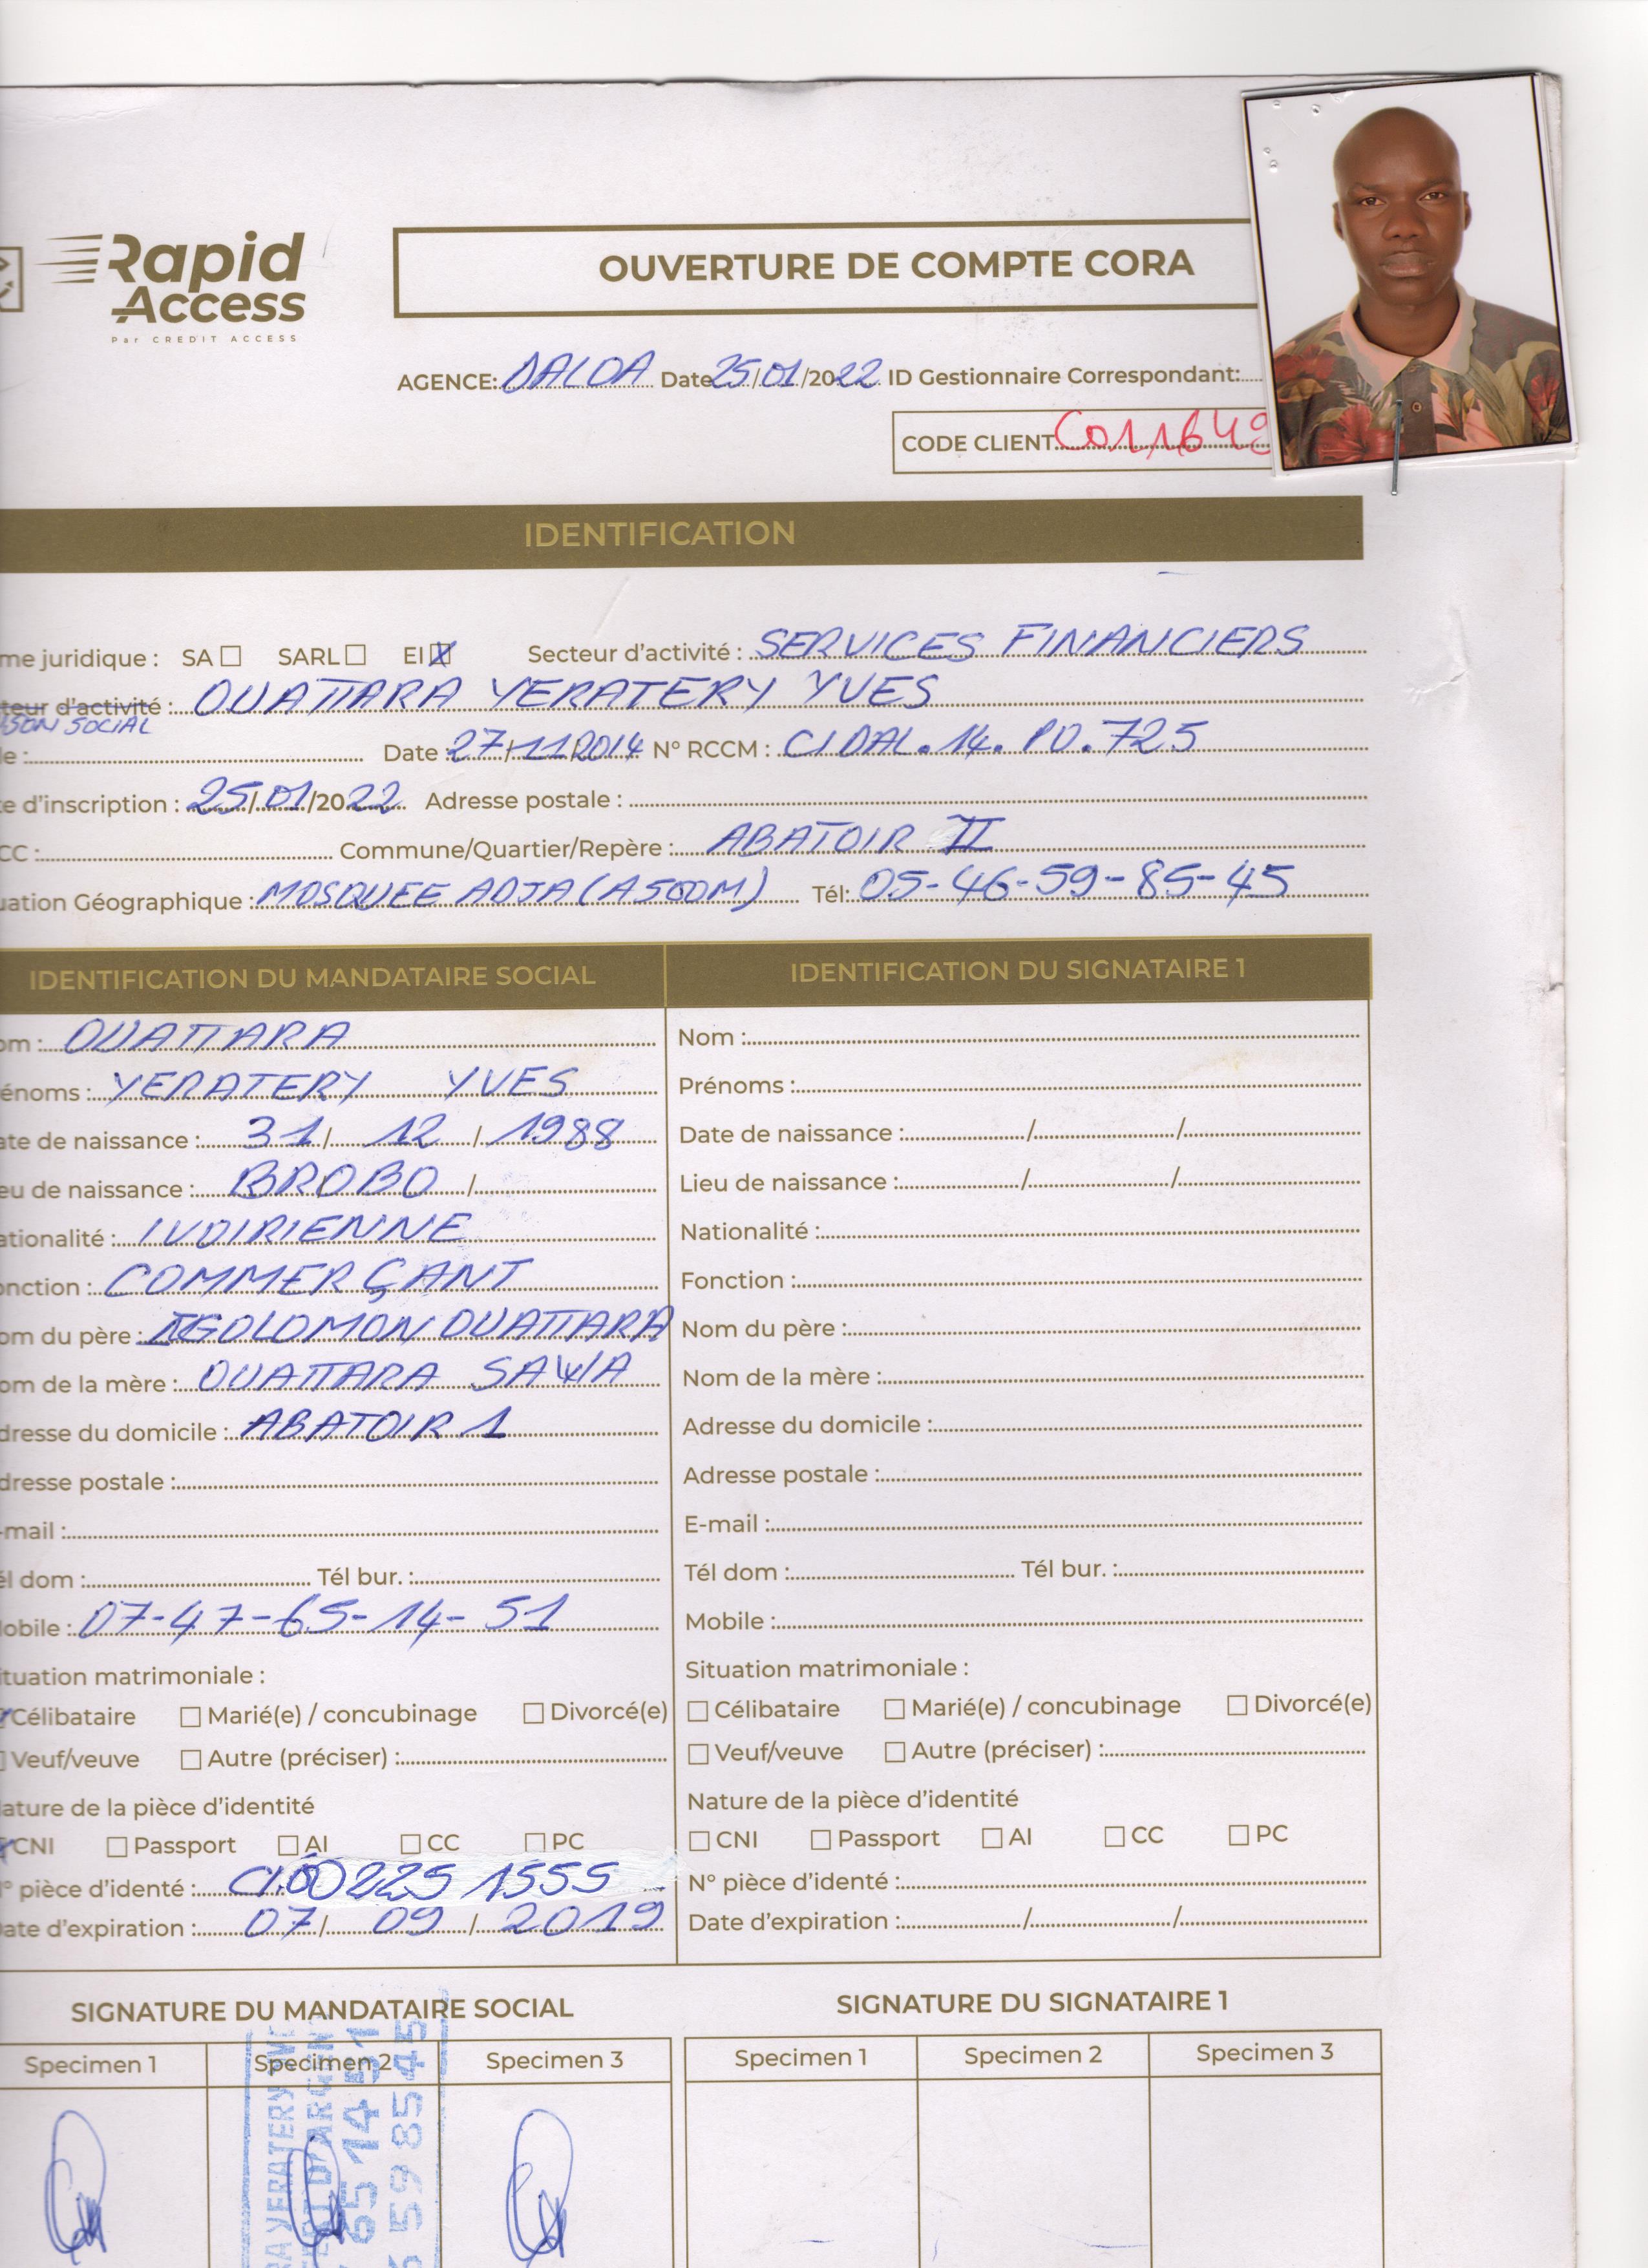 Rapid
Access
Par CREDIT ACCESS
OUVERTURE DE COMPTE CORA
AGENCE: DALOA Date 25/01/2022 ID Gestionnaire Correspondant:
CODE CLIENT C011649
IDENTIFICATION
me juridique : SA SARL EI X Secteur d'activité : SERVICES FINANCIERS
teur d'activité : OUATTARA YERATERY YVES
SON SOCIAL
le : Date : 27/11/2014 N° RCCM : CI DAL. 14. PO. 725
e d'inscription : 25/01/2022 Adresse postale :
CC : Commune/Quartier/Repère : ABATOIR II
uation Géographique : MOSQUEE ADJA (A500M) Tél: 05-46-59-85-45
IDENTIFICATION DU MANDATAIRE SOCIAL IDENTIFICATION DU SIGNATAIRE 1
om : OUATTARA Nom :
énoms : YERATERY YVES Prénoms :
ate de naissance : 31 / 12 / 1988 Date de naissance : / /
eu de naissance : BROBO / Lieu de naissance : / /
ationalité : IVOIRIENNE Nationalité :
onction : COMMERÇANT Fonction :
om du père : OUATTARA Nom du père :
om de la mère : OUATTARA Nom de la mère :
dresse du domicile : ABATOIR 1 Adresse du domicile :
dresse postale : Adresse postale :
-mail : E-mail :
él dom : Tél bur. : Tél dom : Tél bur. :
obile : 07-47-65-14-51 Mobile :
ituation matrimoniale : Situation matrimoniale :
Célibataire Marié(e) / concubinage Divorcé(e) Célibataire Marié(e) / concubinage Divorcé(e)
Veuf/veuve Autre (préciser) : Veuf/veuve Autre (préciser) :
ature de la pièce d'identité Nature de la pièce d'identité
CNI Passport AI CC PC CNI Passport AI CC PC
N° pièce d'identé : 0225 1555 N° pièce d'identé :
ate d'expiration : 07 / 09 / 2019 Date d'expiration : / /
SIGNATURE DU MANDATAIRE SOCIAL SIGNATURE DU SIGNATAIRE 1
Specimen 1 Specimen 2 Specimen 3 Specimen 1 Specimen 2 Specimen 3
RA YERATERY
D'ARGEN
65 14 51
59 85 45